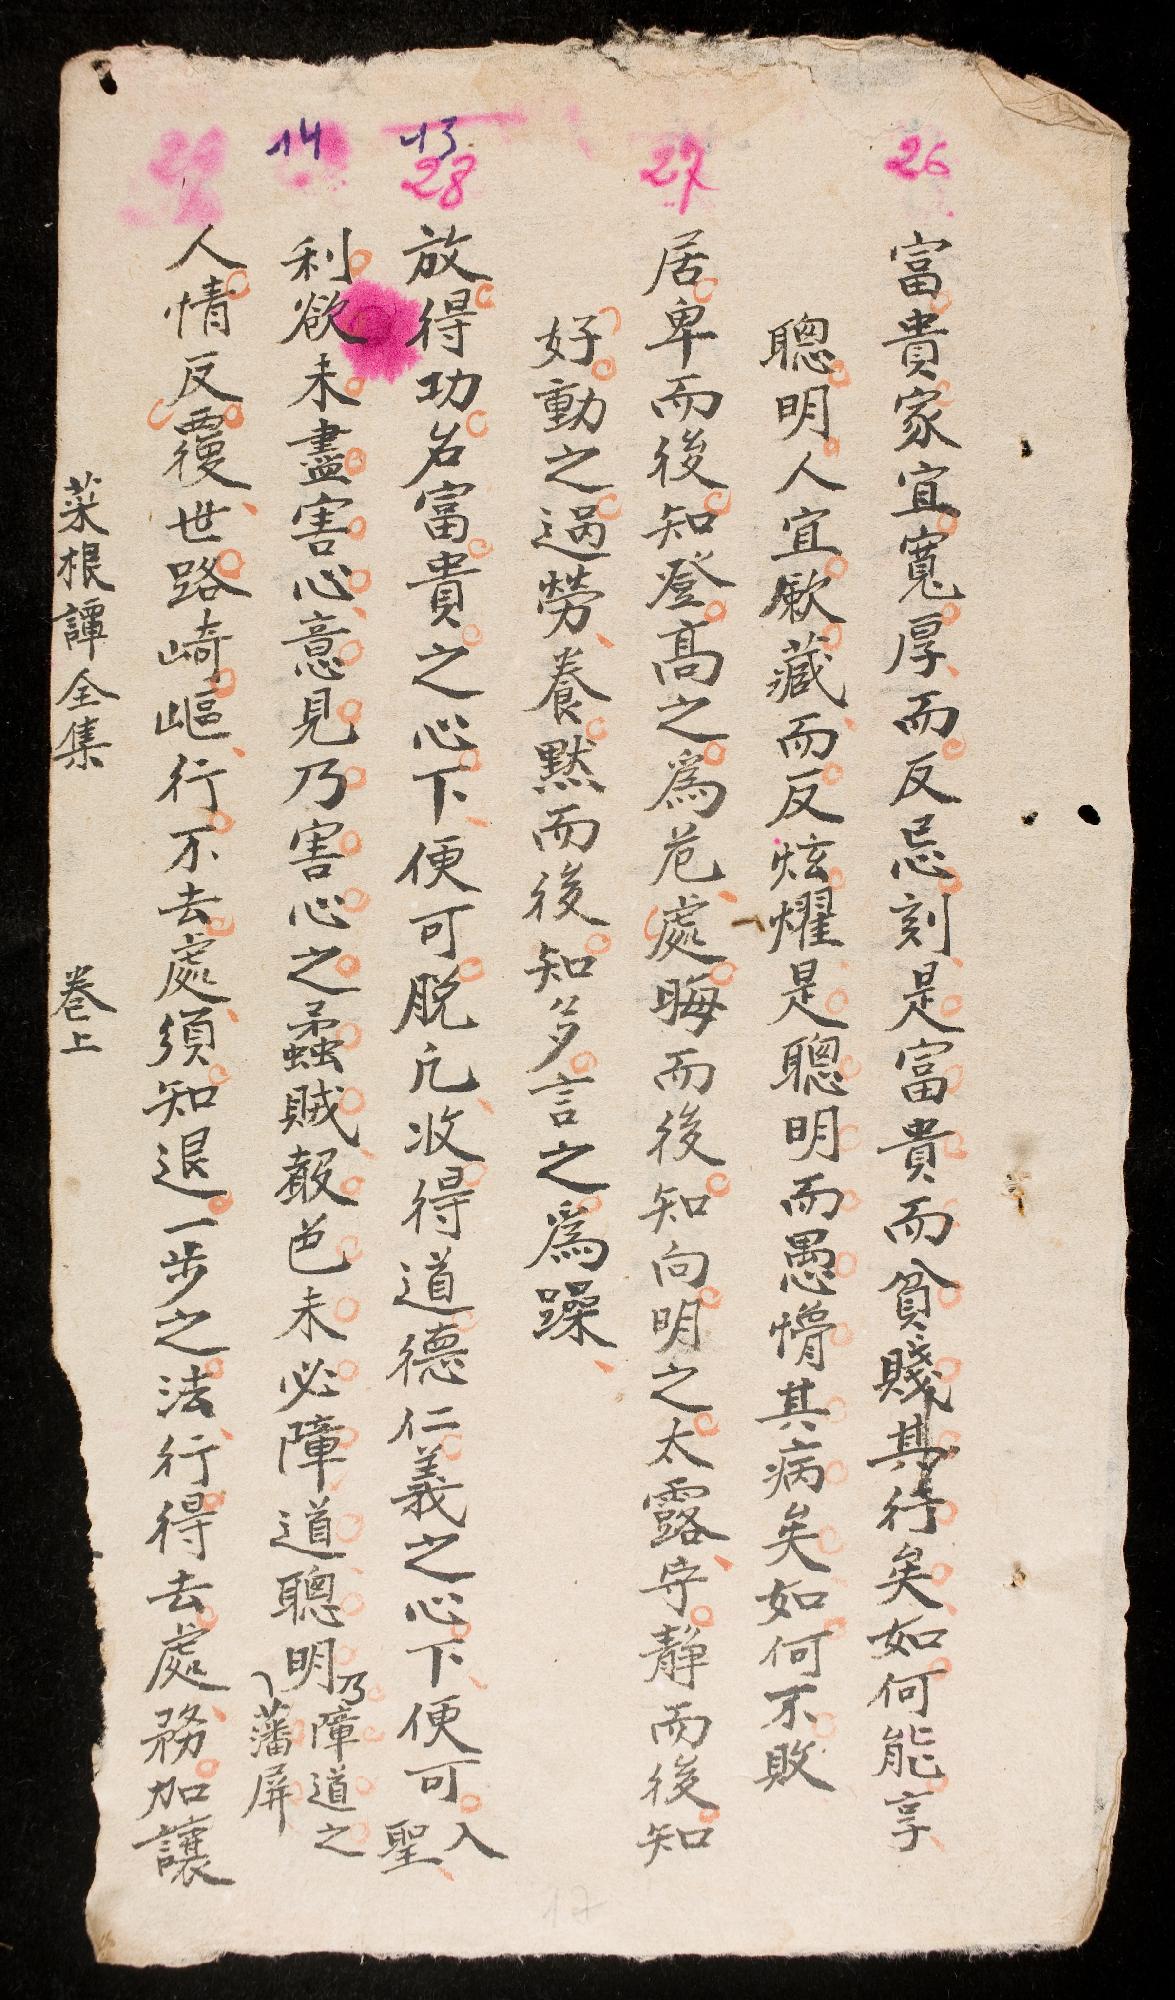 26
富貴家宜寬厚而反忌刻是富貴而貧賤其行矣如何能享
聰明人宜歛藏而反炫耀是聰明而愚懵其病矣如何不敗
27
居卑而後知登高之爲危處晦而後知向明之太露守靜而後知
好動之過勞養默而後知多言之爲躁
13
28
放得功名富貴之心下便可脫凢收得道德仁義之心下便可入聖
14
利欲未盡害心意見乃害心之蟊賊聲色未必障道聰明乃障道之藩屏
29
人情反覆世路崎嶇行不去處須知退一步之法行得去處務加讓
菜根譚全集 卷上
17